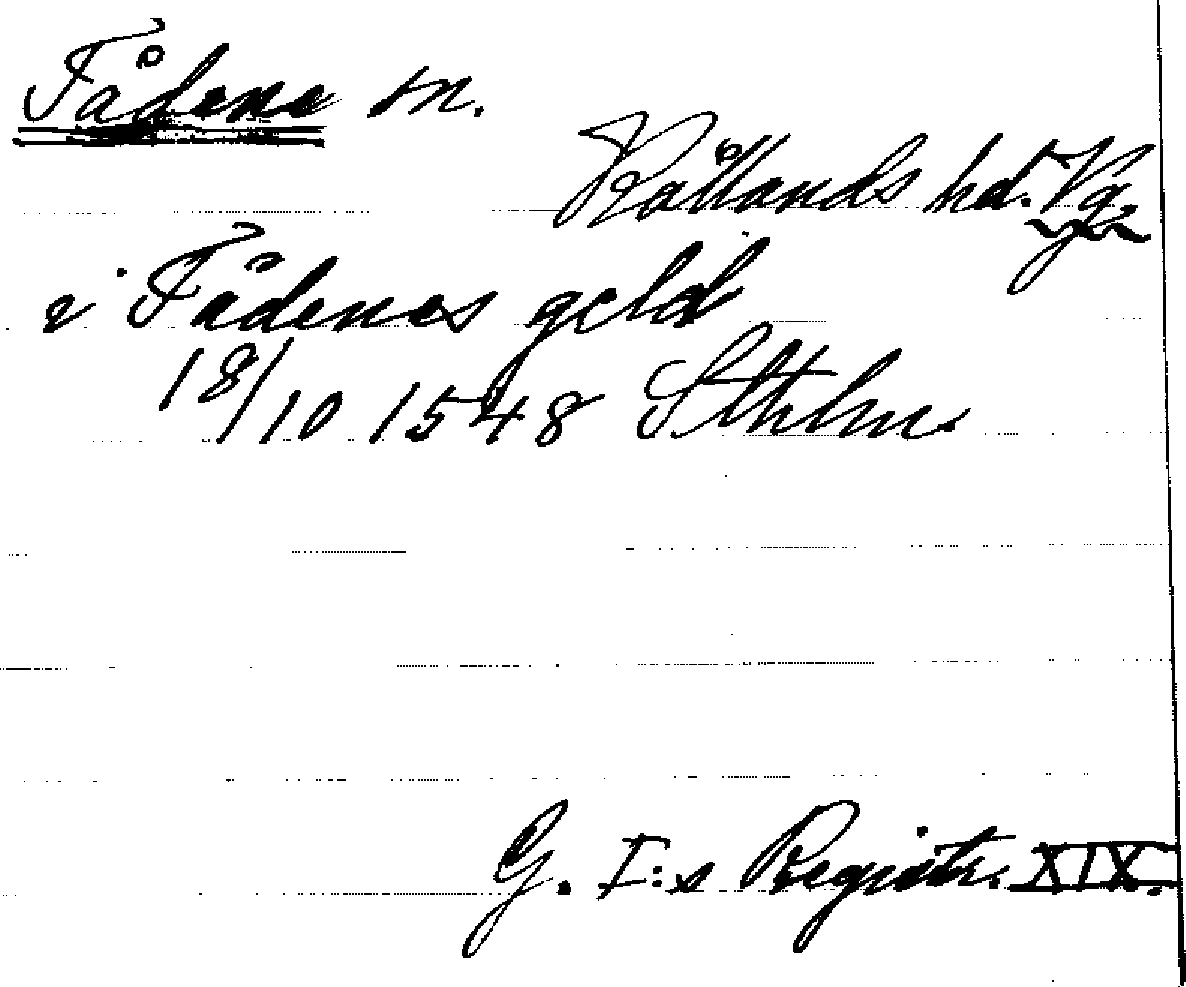 Tådene sn.
Kållands hd. Vg.
i Tådenes geld
18/10 1548 Sthlm.
G. I:s Registr. XIX.